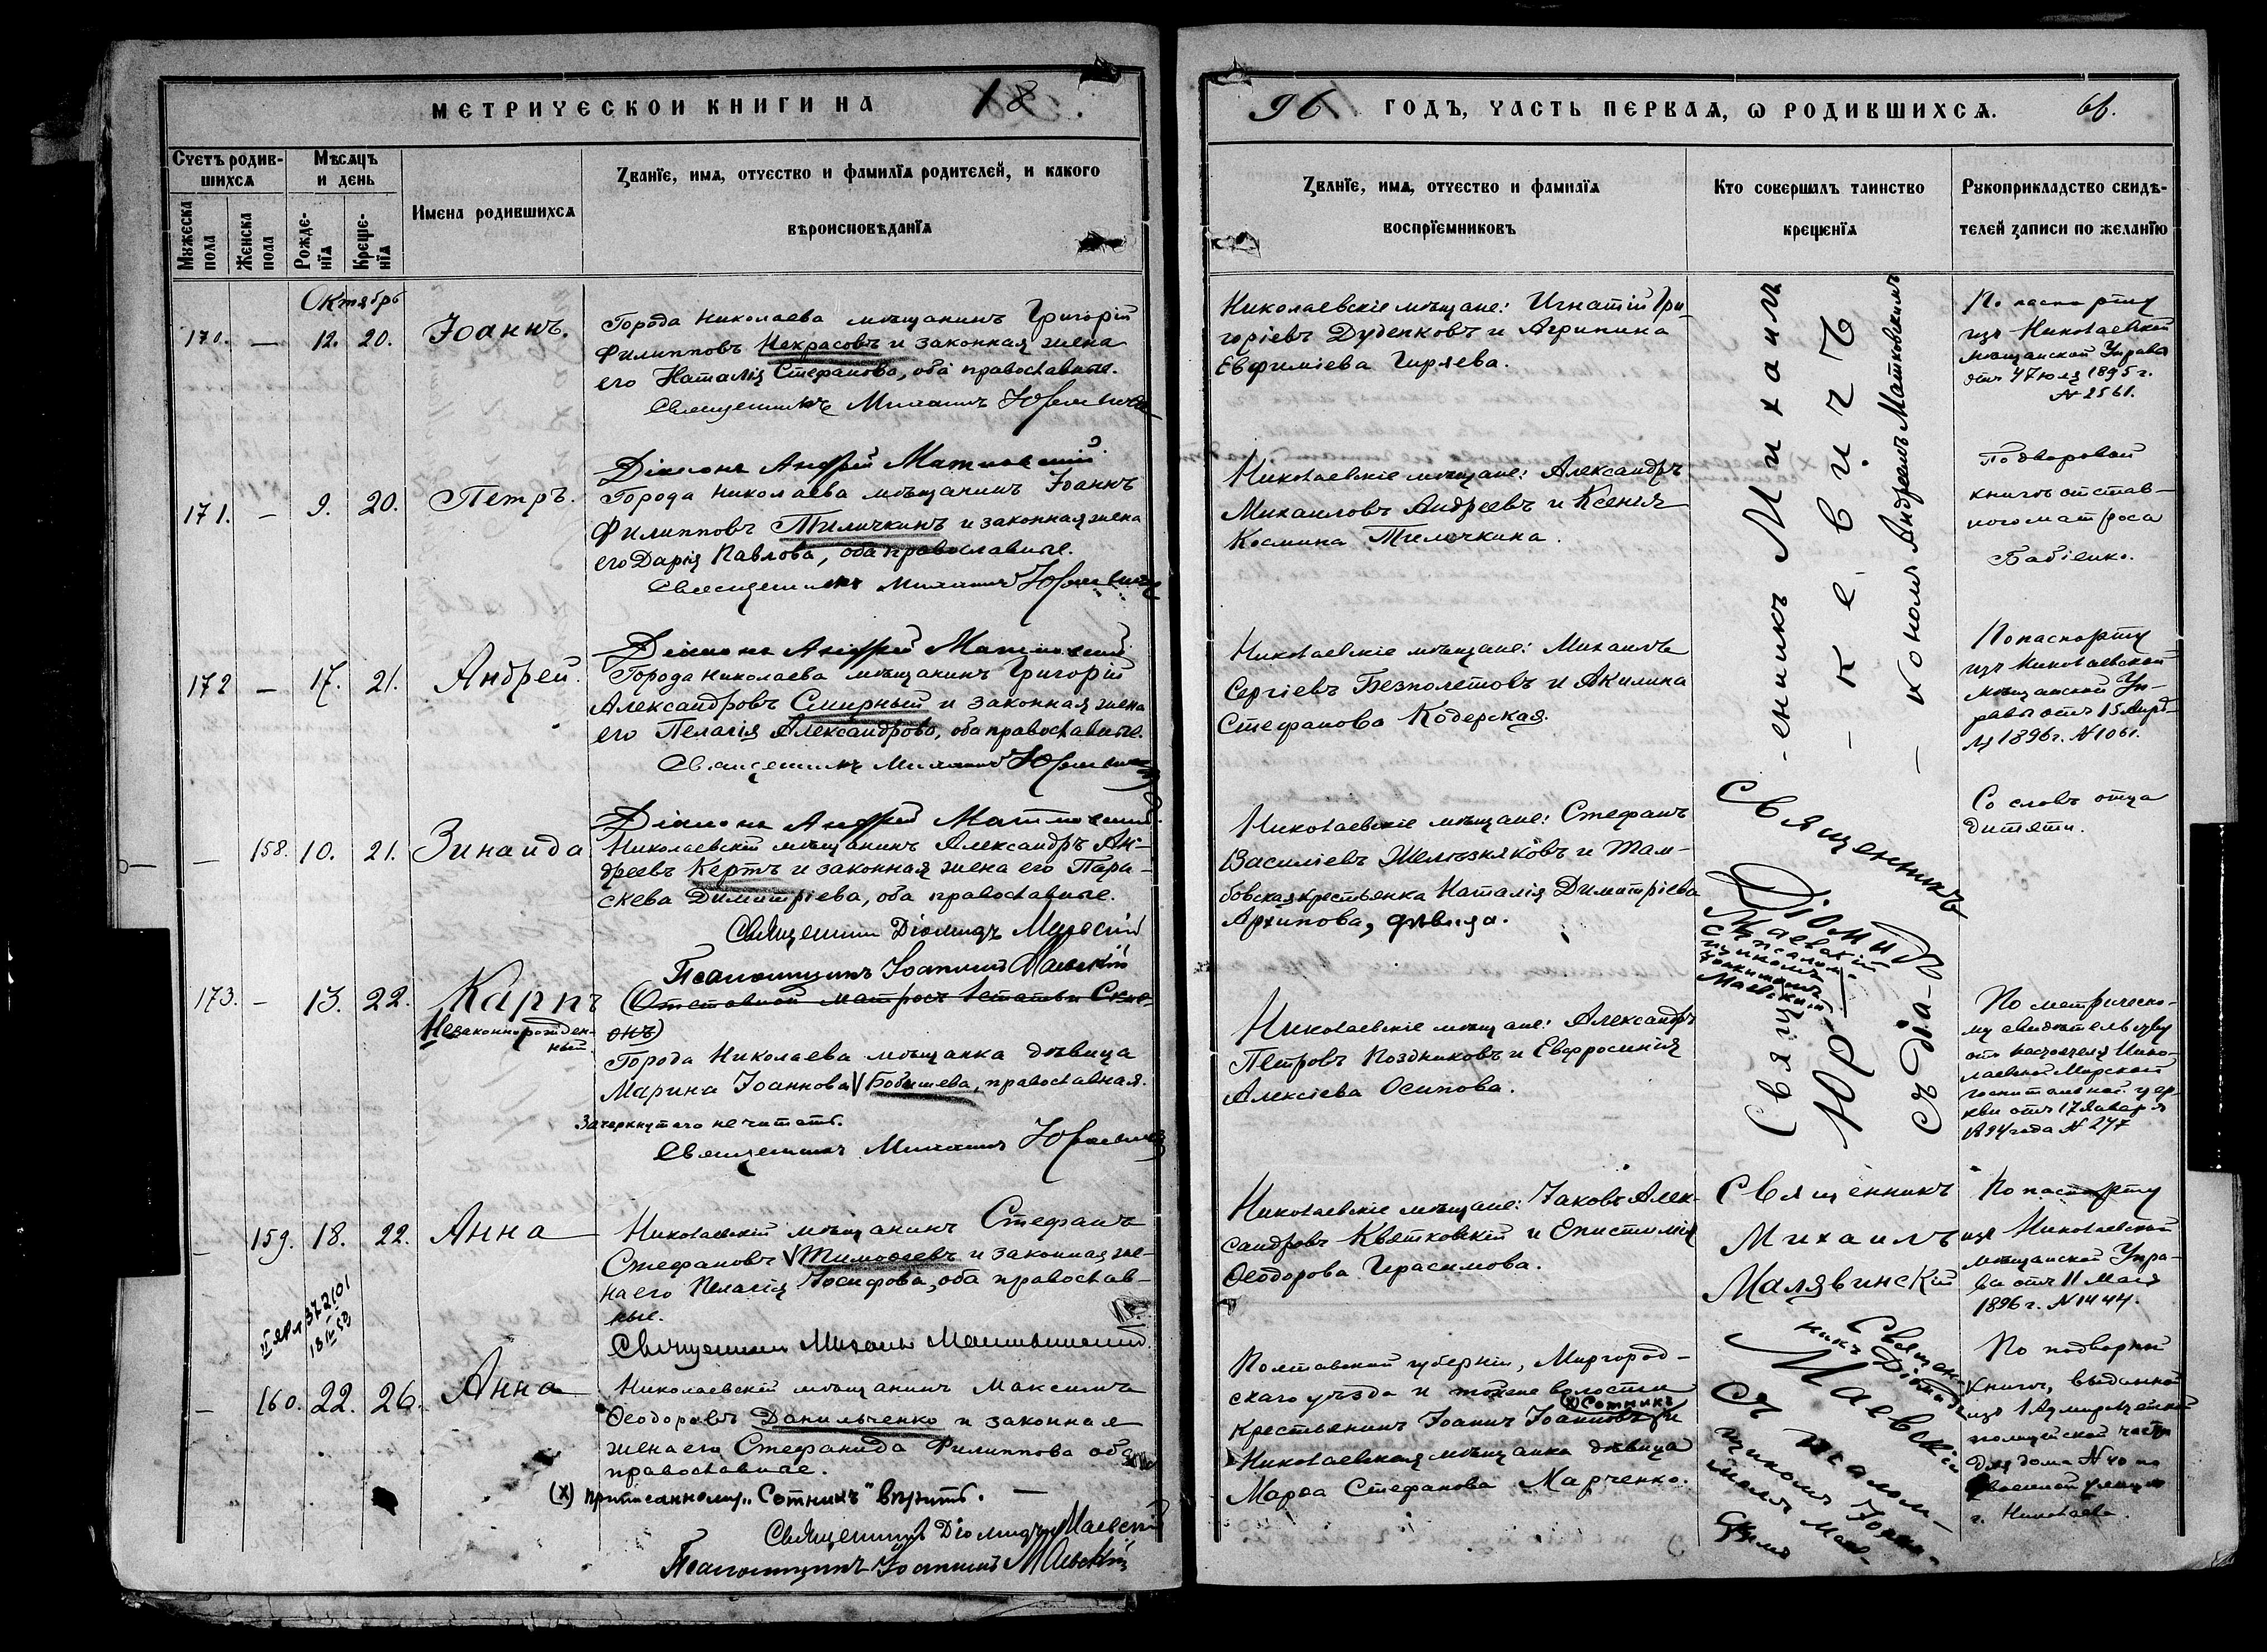 МЕТРИЧЕСКОЙ КНИГИ НА 18
96 ГОДЪ, ЧАСТЬ ПЕРВАѦ, Ѡ РОДИВШИХСѦ.
Счетъ родив-
шихсѧ
Мѣсѧцъ
и день
Мужеска
пола
Женска
пола
Рожде-
нїѧ
Креще-
нїѧ
Имена родившихсѧ
Званїе, имѧ, отчество и фамилїѧ родителей, и какого
вѣроисповѣданїѧ
Званїе, имѧ, отчество и фамилїѧ
воспрїемниковъ
Кто совершалъ таинство
крещенїѧ
Рукоприкладство свидѣ-
телей записи по желанїю
Октябрь
170. — 12. 20. Іоаннъ.
Города Николаева мѣщанинъ Григорій
Филипповъ Некрасовъ и законная жена
его Наталія Стефанова, оба православные.
Священникъ Михаилъ Юркевичъ
Діаконъ Андрей Матковскій
Николаевскіе мѣщане: Игнатій Гри-
горіевъ Дуденковъ и Агрипина
Евфиміева Гиряева.
По паспорту
изъ Николаевской
мѣщанской Управы
отъ 4 7 юля 1895 г.
№ 2561.
171. — 9. 20. Петръ.
Города Николаева мѣщанинъ Іоаннъ
Филипповъ Тиличкинъ и законная жена
его Дарія Павлова, оба православные.
Священникъ Михаилъ Юркевичъ
Діаконъ Андрей Матковскій
Николаевскіе мѣщане: Александръ
Михаиловъ Андреевъ и Ксенія
Космина Тиличкина.
По дворовой
книгѣ отстав-
ного матроса
Бабіенко.
172 — 17. 21. Андрей.
Города Николаева мѣщанинъ Григорій
Александровъ Смирный и законная жена
его Пелагія Александрова, оба православные.
Священникъ Михаилъ Юркевичъ
Діаконъ Андрей Матковскій
Николаевскіе мѣщане: Михаилъ
Сергіевъ Безполетовъ и Акилина
Стефанова Кодерская.
По паспорту
изъ Николаевской
мѣщанской Уп-
равы отъ 15 Апрѣ-
ля 1896 г. № 1061.
— 158. 10. 21. Зинаида
Николаевскій мѣщанинъ Александръ Ан-
дреевъ Кертъ и законная жена его Пара-
скева Димитріева, оба православные.
Священникъ Діомидъ Маевскій
Псаломщикъ Іоанникій Маевскій
Николаевскіе мѣщане: Стефанъ
Василіевъ Желѣзняковъ и Там-
бовская крестьянка Наталія Димитріева
Архипова, дѣвица.
Священникъ
Діомидъ
Маевскій
съ псалом-
щикомъ
Іоанникіемъ
Маевскимъ
Со словъ отца
дитяти.
173. — 13. 22. Карпъ
Незаконнорожден-
ный
(Отставной матросъ
онъ)
Города Николаева мѣщанка дѣвица
Марина Іоаннова Бобышева, православная.
Зачеркнутаго не читать.
Священникъ Михаилъ Юркевичъ
Николаевскіе мѣщане: Александръ
Петровъ Поздниковъ и Евфросинія
Алексіева Осипова.
Священникъ Михаилъ
Юркевичъ
съ діакономъ Андреемъ Матковскимъ
По метрическо-
му свидѣтельству
отъ настоятеля Нико-
лаевской Морской
госпитальной цер-
кви отъ 17 Января
1894 года № 247
— 159. 18. 22. Анна
Николаевскій мѣщанинъ Стефанъ
Стефановъ Тимоѳеевъ и законная же-
на его Пелагія Іосифова, оба православ-
ные.
Священникъ Михаилъ Малявинскій
Николаевскіе мѣщане: Іаковъ Алек-
сандровъ Квятковскій и Епистимія
Ѳеодорова Герасимова.
Священникъ
Михаилъ
Малявинскій
По паспорту
изъ Николаевской
мѣщанской Упра-
вы отъ 11 Мая
1896 г. № 1444.
— 160. 22. 26. Анна
Николаевскій мѣщанинъ Максимъ
Ѳеодоровъ Данильченко и законная
жена его Стефанида Филиппова оба
православные.
(х) приписанному "Сотникъ" вѣрить. —
Священникъ Діомидъ Маевскій
Псаломщикъ Іоанникій Маевскій
Полтавской губерніи, Миргород-
скаго уѣзда и тойже волости
(х) Сотникъ
крестьянинъ Іоаннъ Іоанновъ и
Николаевская мѣщанка дѣвица
Марѳа Стефанова Марченко.
Священ-
никъ Діомидъ
Маевскій
съ псалом-
щикомъ Іоанни-
кіемъ Маев-
скимъ
По подворной
книгѣ, выданной
изъ 1 Адмиралтейской
полицейской части
для дома № 40 по
военной улицѣ
г. Николаева.